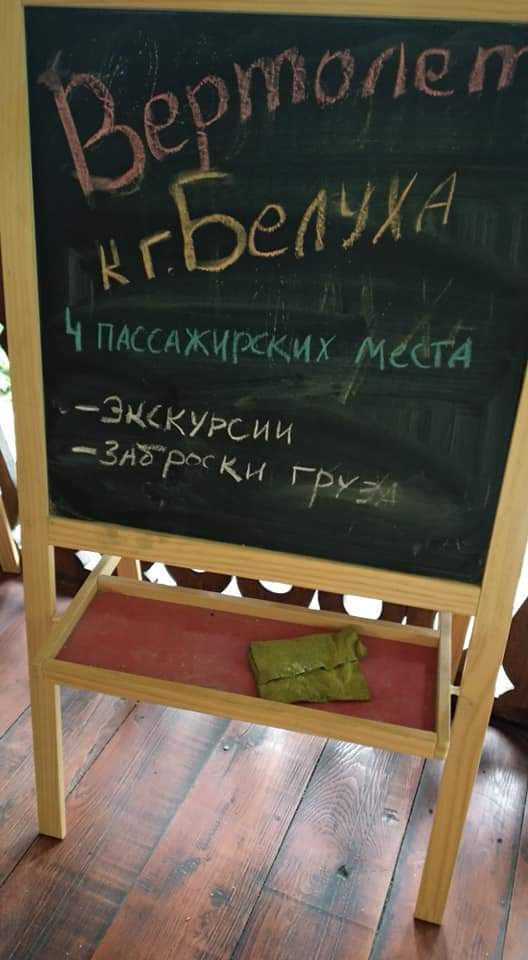 Вертолет
к г. Белуха
4 пассажирских места
- Экскурсии
- Заброски груза